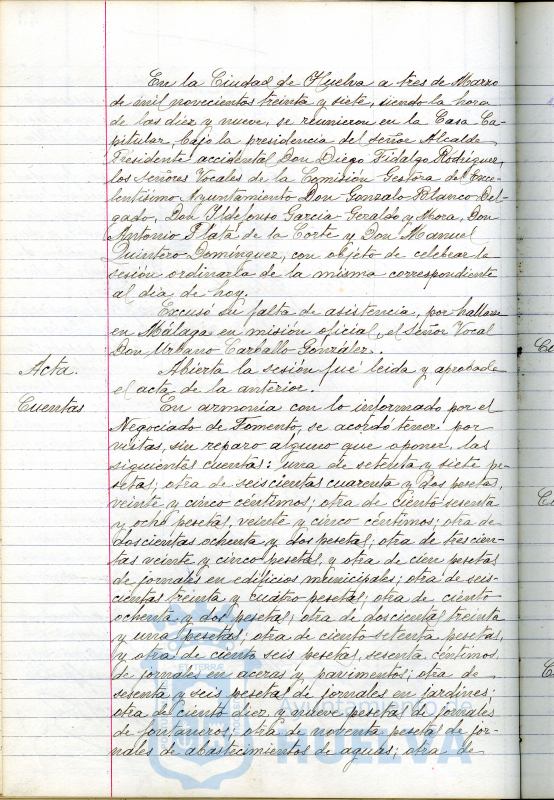 En la Ciudad de Huelva a tres de Marzo
de mil novecientos treinta y siete, siendo la hora
de las diez y nueve, se reunieron en la Casa Ca-
pitular, bajo la presidencia del señor Alcalde
Presidente accidental Don Diego Fidalgo Rodríguez,
los Señores Vocales de la Comisión Gestora del Exce-
lentísimo Ayuntamiento Don Gonzalo Blanco Del-
gado, Don Ildefonso García Geraldo y Mora, Don
Antonio Plata de la Corte y Don Manuel
Quintero Domínguez, con objeto de celebrar la
sesión ordinaria de la misma correspondiente
al día de hoy.
Excusó su falta de asistencia, por hallarse
en Málaga en misión oficial, el Señor Vocal
Don Urbano Carballo González.
Acta. Abierta la sesión fué leida y aprobada
el acta de la anterior.
Cuentas En armonía con lo informado por el
Negociado de Fomento, se acordó tener por
vistas, sin reparo alguno que oponer, las
siguientes cuentas: una de setenta y siete pe-
setas; otra de seiscientas cuarenta y dos pesetas,
veinte y cinco céntimos; otra de ciento sesenta
y ocho pesetas, veinte y cinco céntimos; otra de
doscientas ochenta y dos pesetas; otra de trescien-
tas veinte y cinco pesetas, y otra de cien pesetas
de jornales en edificios municipales; otra de seis-
cientas treinta y cuatro pesetas; otra de ciento
ochenta y dos pesetas; otra de doscientas treinta
y una pesetas; otra de ciento setenta pesetas,
y otra de ciento seis pesetas, sesenta céntimos
de jornales en aceras y pavimentos; otra de
sesenta y seis pesetas de jornales en jardines;
otra de ciento diez y nueve pesetas de jornales
de fontaneros; otra de noventa pesetas de jor-
nales de abastecimientos de aguas; otra de
Ayuntamiento de
HUELVA